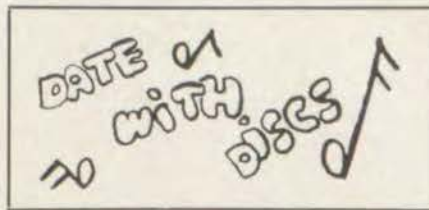 DATE
WiTH
DiSCS